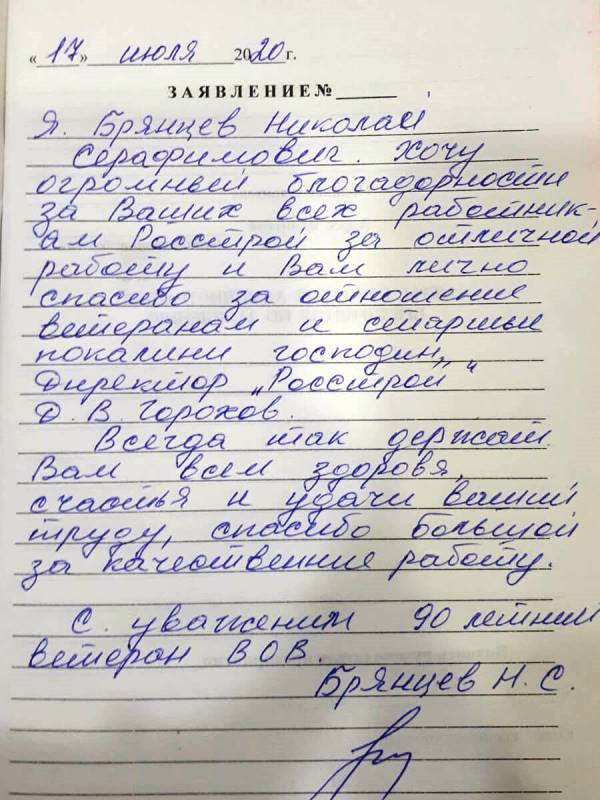 «17» июля 2020 г.
ЗАЯВЛЕНИЕ №
Я. Брянцев Николай
Серафимович. Хочу
огромный благадорности
за Ваших всех работник-
ам Росстрой за отличной
работу и Вам лично
спасибо за отношение
ветеранам и старшы
покалини господин,
Директор „Росстрой“
Д. В. Горохов.
Всегда так держат.
Вам всем здоровя,
счастья и удачи ваший
труду, спасибо большой
за качественние работу.
С уважением 90 летний
ветеран ВОВ.
Брянцев Н. С.